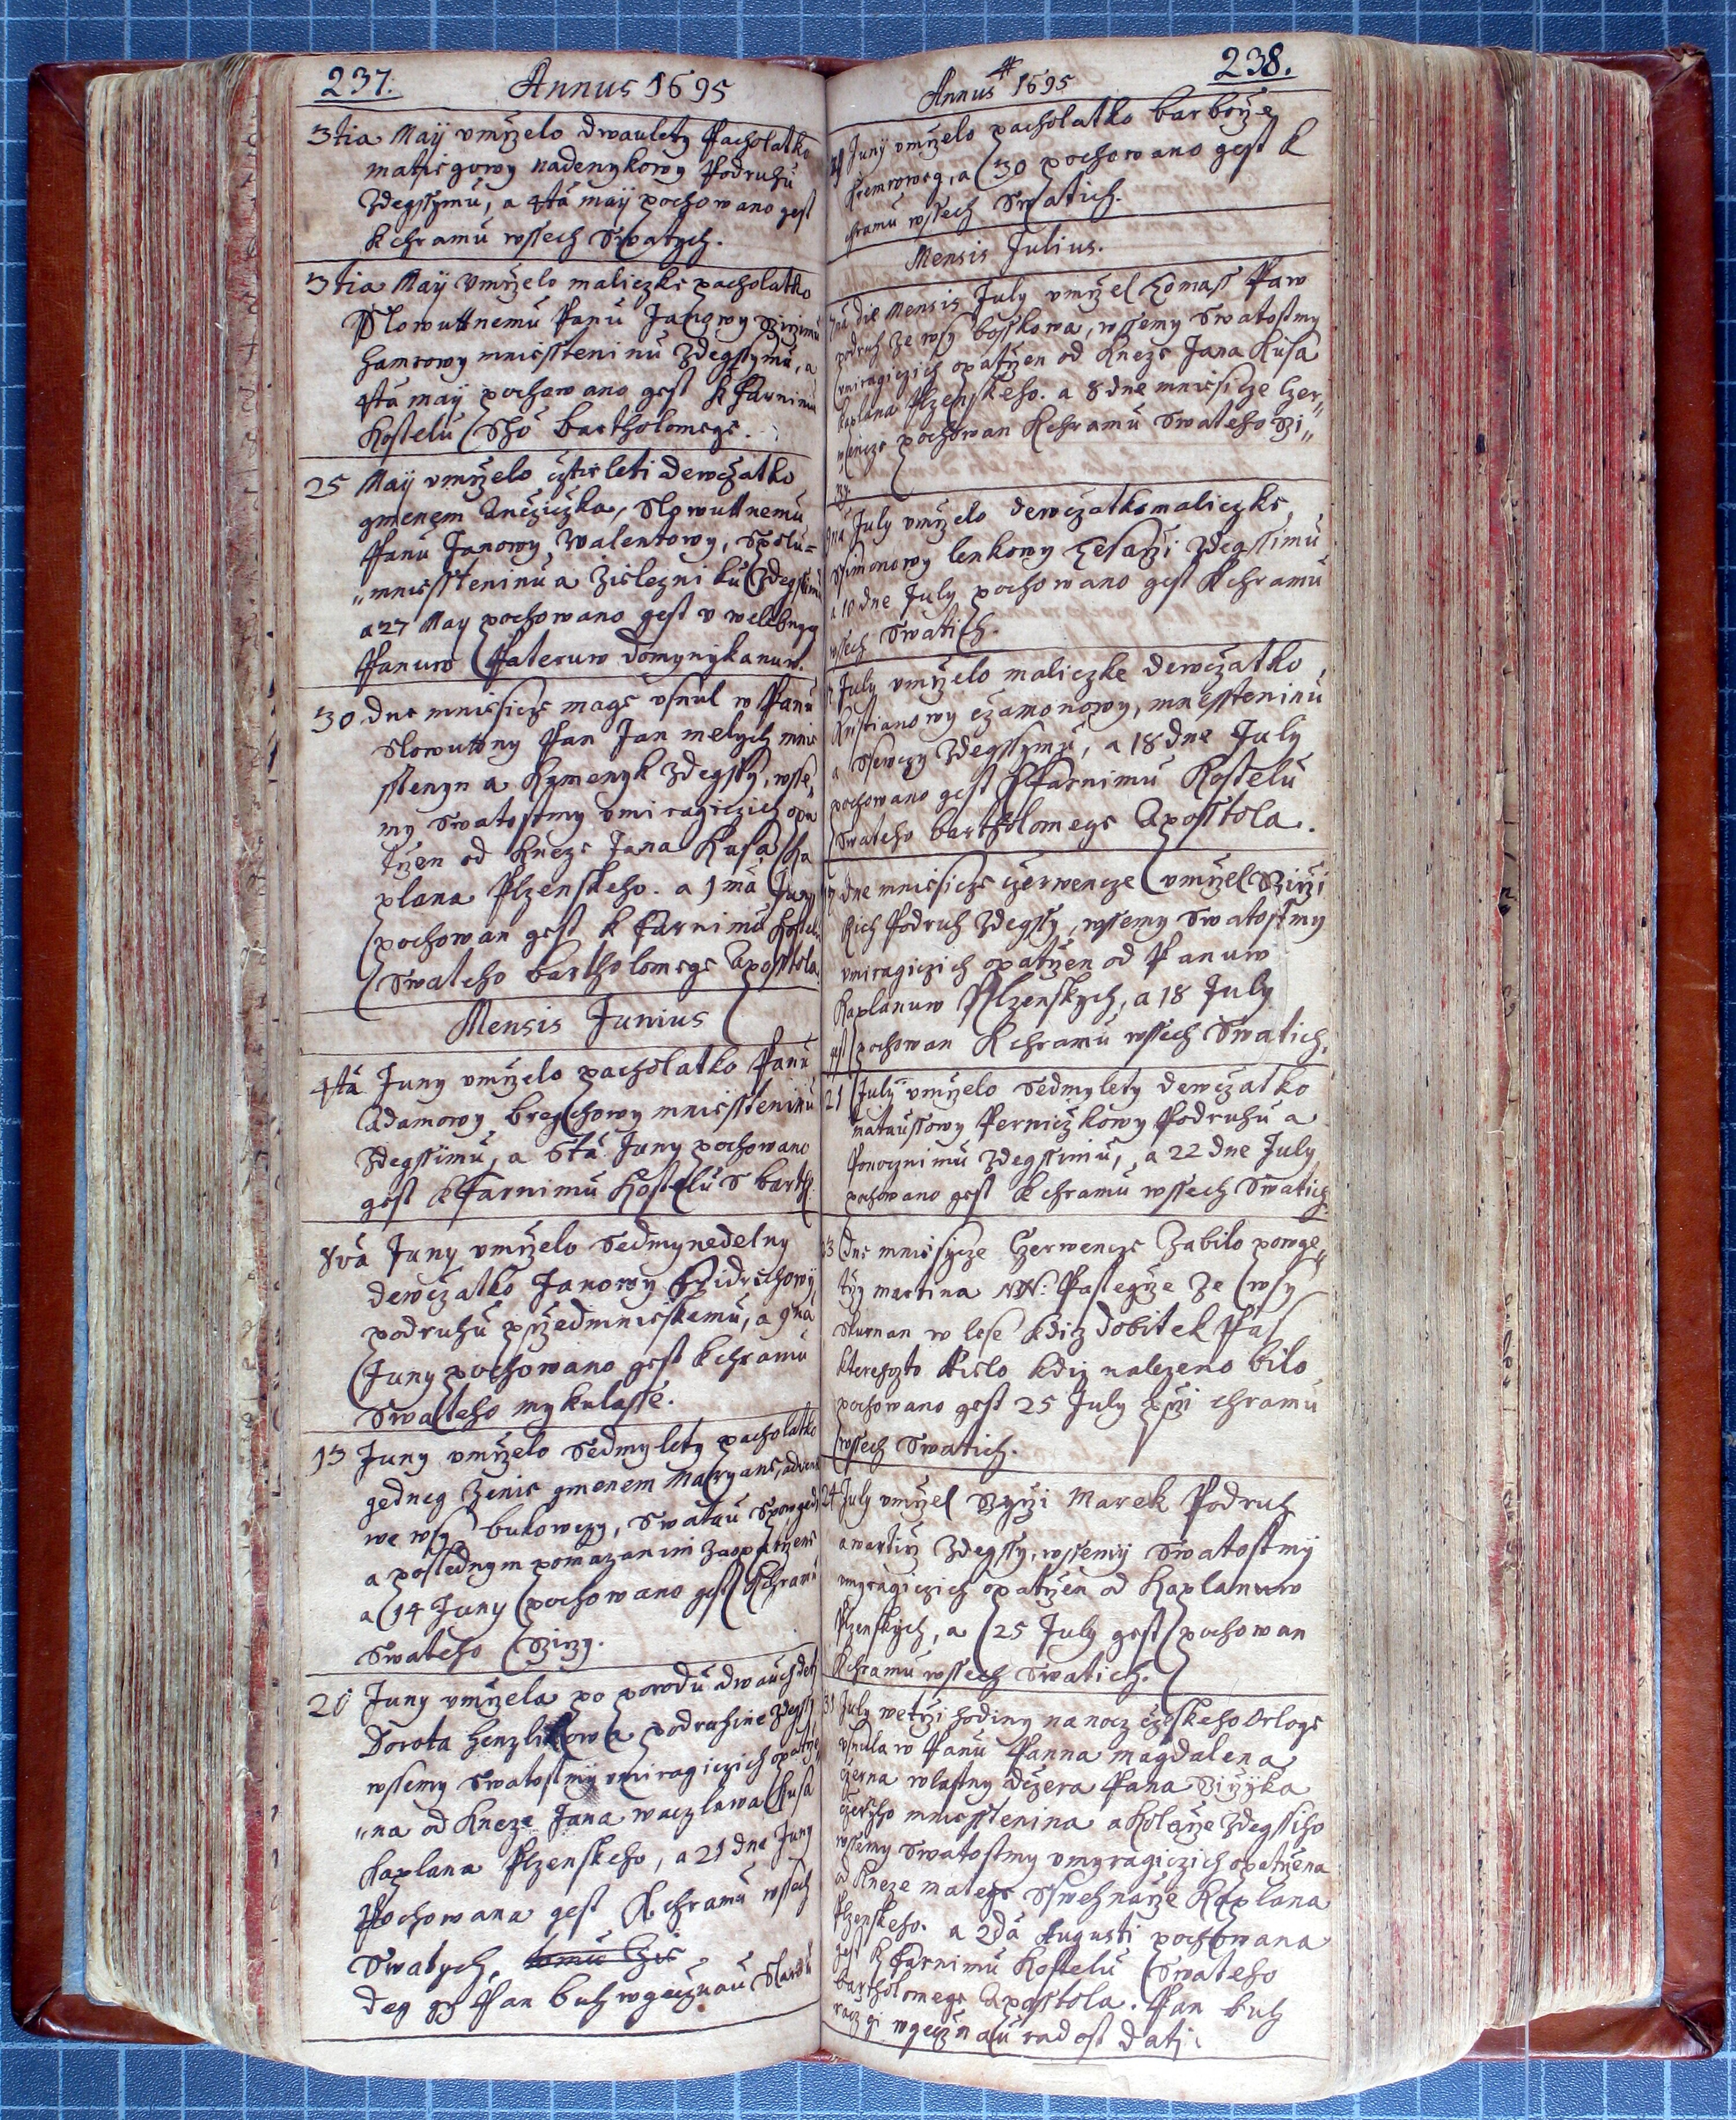 237.
Annus 1695
3tia Maÿ vmrzelo dwaulety Pacholatko
matiegowy nadenykowy Podruhu
Zdegssymu, a 4tá maÿ pochowano gest
k chramu wssech Swatych.
3tia Maÿ vmrzelo maliczke pacholatko
Slowuttnemu Panu Janowy
hamrowy mniessteninu Zdegssymu, a
4tá maÿ pochowano gest k Farnimu
Kostelu Sho bartholomege.
25 Maÿ vmrzelo cztirleti dewczatko
gmenem Ancziczka, Slowuttnemu
Panu Janowy Walentowy, Spolu=
„mniessteninu a Zielezniku Zdegssimu
a 27 May pochowano gest v welebnych
Panuw Pateruw domynykanuw.
30 dne miesicze mage vsnul w Panu
Slowuttny Pan Jan melych mnie
sstenyn a Kzmenyk Zdegssy, wsse„
my Swatostmy vmiragiczich opa
trzen od Kneze Jana Kusa Ka
plana Plzenskeho. a 1má Juny
pochowan gest k Farnimu Kostelu
Swateho bartholomege Aposstola.
Mensis Junius
4tá Juny vmrzelo pacholatko Panu
Adamowy breychowy mniessteninu
Zdegssimu, a 6tá Juny pochowano
gest k Farnimu Kostelu S barth.
8vá Juny vmrzelo Sedmynedelny
dewczatko Janowy
podruhu przedmiestskemu, a 9ná
Juny pochowano gest k chramu
Swateho mykulasse.
13 Juny vmrzelo Sedmylety pacholatko
gedneg zenie gmenem Maryane,
we wsy bukowczy, Swatau Spowedi
a poslednym pomazanim zaopatrzene
a 14 Juny pochowano gest k chramu
Swateho Girzy.
20 Juny vmrzela po porodu dwauch deti
Dorota henzlikowa podruhine Zdegssy
wssemy Swatostmÿ vmiragiczich opatrze
„na od Kneze Jana waczlawa Kusa
Kaplana Plzenskeho, a 21 dne Juny
Pochowana gest K chramu wssech
Swatych,
deg gy Pan buh wgecznau Slawu
238.
Annus 1695
Junÿ vmrzelo pacholatko barborze
a 30 pochowano gest k
chramu wssech Swatich.
Mensis Julius.
die Mensis July vmrzel Tomass Paw
podruh ze wsy bosskowa, wssemy Swatostmy
vmiragiczich opatrzen od Kneze Jana Kusa
Kaplana Plzenskeho. a 8 dne miesicze Czer„
wencze pochowan K chramu Swateho Gi„
rzy.
9ná July vmrzelo dewczatko maliczke,
Ssimonowy lenkowy Tesarzi Zdegssimu
a 10 dne July pochowano gest K chramu
wssech Swatich.
July vmrzelo maliczke dewczatko
Kristianowy czamonowy, mnessteninu
a Ssewczy Zdegssymu, a 18 dne July
pochowano gest k Farnimu Kostelu
Swateho bartholomege Aposstola.
17 dne miesicze czerwencze vmrzel Girzi
Rich Podruh Zdegssy, wssemy Swatostmy
vmiragiczich opatrzen od Panuw
Kaplanuw Plzenskych, a 18 July
gest pochowan K chramu wssech Swatich.
21 July vmrzelo Sedmylety dewczatko
mataussowy Perniczkowy Podruhu a
Ponocznimu Zdegssimu, a 22 dne July
pochowano gest K chramu wssech Swatich.
23 dne miesycze Czerwencze Zabilo powge„
trzy martina NN: Pastegrze ze wsy
Skurnan w lese kdiz dobitek Pas
kterehozto tielo kdiz nalezeno bilo
pochowano gest 25 July przi chramu
wssech Swatich.
24 July vmrzel Girzi Marek Podruh
a wartirz Zdegssy, wssemÿ Swatostmÿ
vmyragiczich opatrzen od Kaplanuw
Plzenskych, a 25 July gest pochowan
K chramu wssech Swatich.
31 July wetrzi hodiny na nocz czeskeho Orloge
vsnula w Panu Panna magdalena
czerna wlastny dczera Pana Girzyka
czerneho mniesstenina a Kolarze Zdegssiho
wssemy Swatostmy vmyragiczich opatrzena
od Kneze matege Kaplana
Plzenskeho. a 2dá Augusti pochowana
gest k Farnimu Kostelu Swateho
bartholomege Aposstola. Pan buh
racz gi wgecznau radost dati.